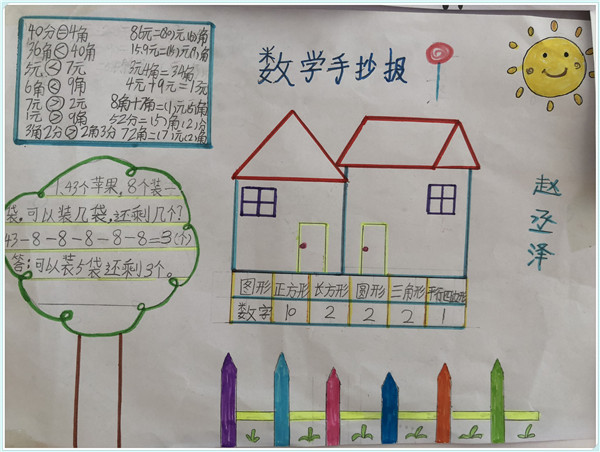 数学手抄报
赵丞泽
40分=4角
36角<40角
5元<7元
6角<9角
7元>2元
1元>9角
3角2分>2角3分
3元4角=34角
4元+9元=13元
8角+7角=(1)元(5)角
52分=(5)角(2)分
72角=(7)元(2)角
1.43个苹果,8个装一
袋,可以装几袋,还剩几个?
43-8-8-8-8-8=3(个)
答:可以装5袋还剩3个。
图形 正方形 长方形 圆形 三角形 平行四边形
数字 10 2 2 2 1